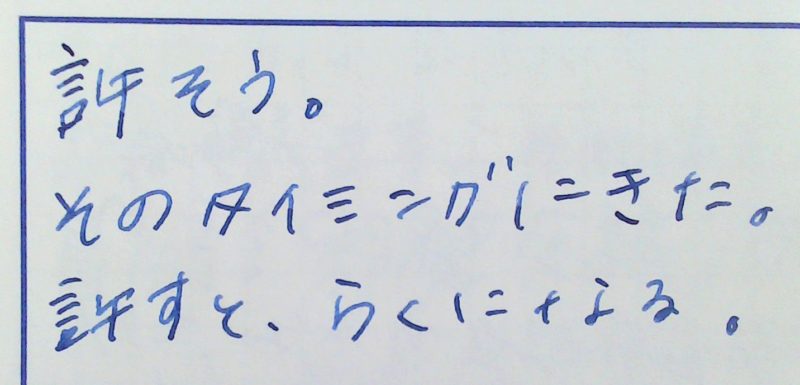 許そう。
そのタイミングにきた。
許すと、らくになる。